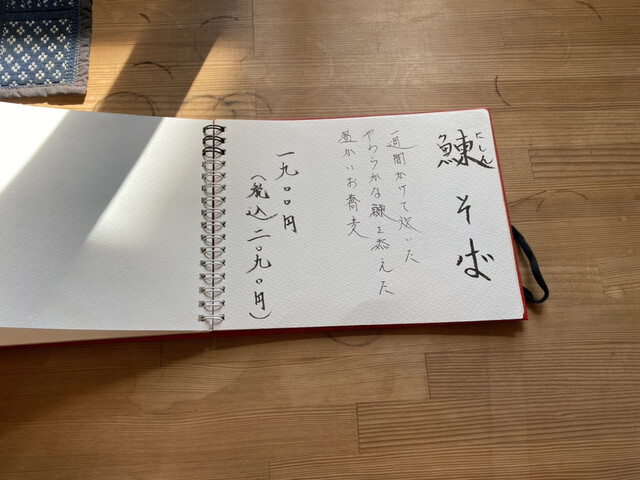 鰊そば
にしん
一週間かけて炊いた
やわらかな鰊を添えた
温かいお蕎麦
一九〇〇円
(税込二〇九〇円)